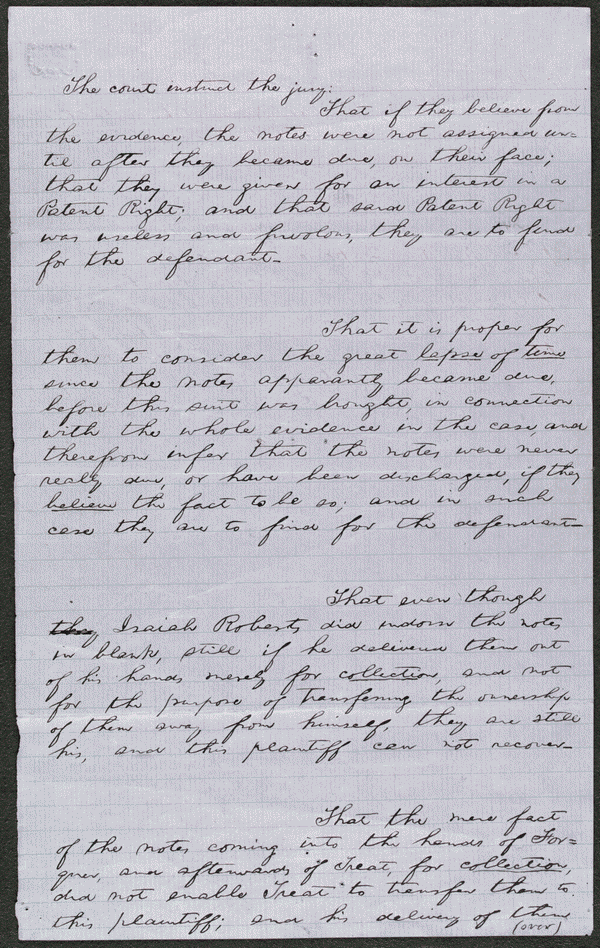 The court instruct the jury:
That if they believe from
the evidence, the notes were not assigned un=
til after they became due, on their face;
that they were given for an interest in a
Patent Right; and that said Patent Right
was useless and frivolous, they are to find
for the defendant—
That it is proper for
them to consider the great lapse of time
since the notes apparantly became due,
before this suit was brought, in connection
with the whole evidence in the case, and
therefrom infer that the notes were never
realy due, or have been discharged, if they
believe the fact to be so; and in such
case they are to find for the defendant—
That even though
they Isaiah Roberts did indorse the notes
in blank, still if he delivered them out
of his hands merely for collection, and not
for the purpose of transfering the ownership
of them away from himself, they are still
his, and this plaintiff can not recover—
That the mere fact
of the notes coming into the hands of For=
quer, and afterwards of Treat, for collection,
did not enable Treat to transfer them to
this plaintiff; and his delivery of them
(over)